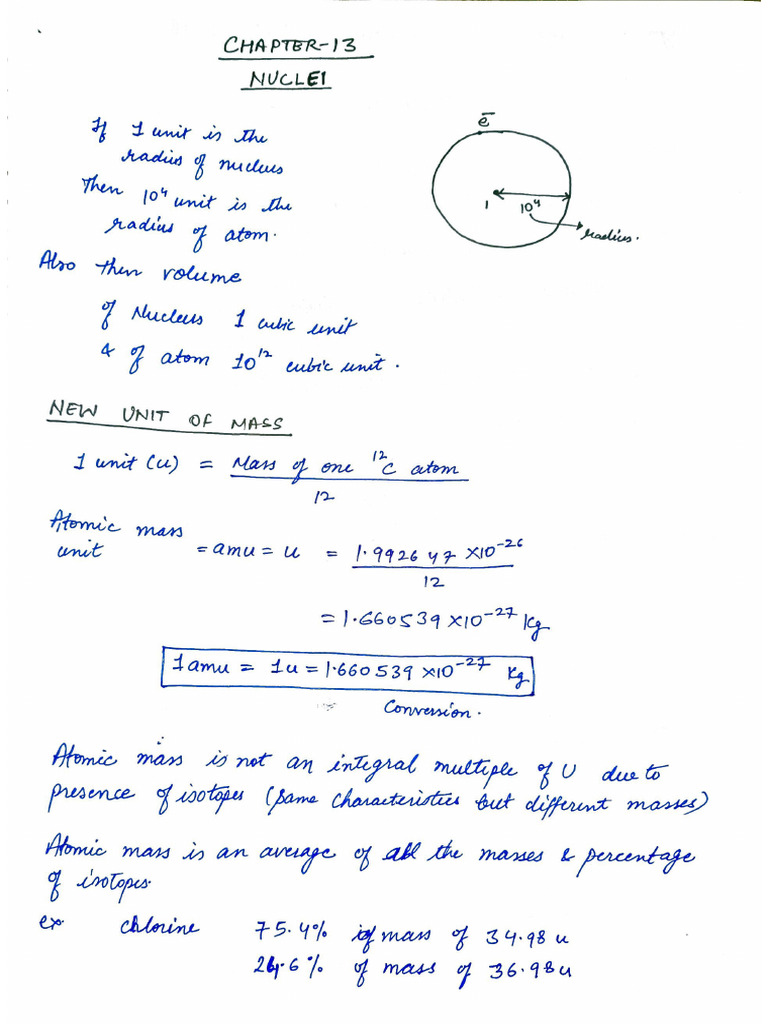 CHAPTER-13
NUCLEI
If 1 unit is the
radius of nucleus
Then 10⁴ unit is the
radius of atom.
e̅
1
10⁴
radius.
Also then volume
of Nucleus 1 cubic unit
& of atom 10¹² cubic unit.
NEW UNIT OF MASS
1 unit (u) = Mass of one ¹²C atom
12
Atomic mass
unit = amu = u = 1.992647 ×10⁻²⁶
12
= 1.660539 ×10⁻²⁷ Kg
1 amu = 1u = 1.660539 ×10⁻²⁷ Kg
Conversion.
Atomic mass is not an integral multiple of U due to
presence of isotopes (same characteristics but different masses)
Atomic mass is an average of all the masses & percentage
of isotopes.
ex. chlorine 75.4% of mass of 34.98 u
24.6% of mass of 36.98u